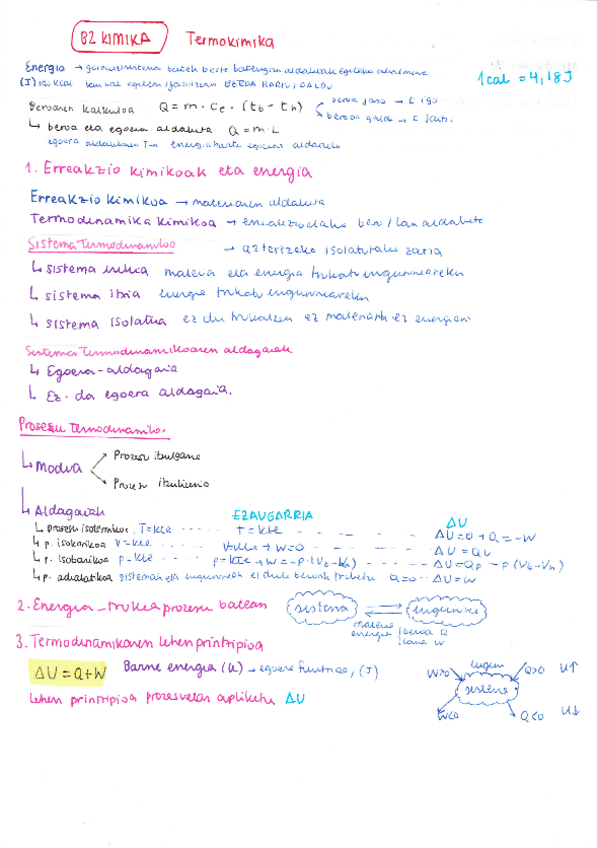 B2 KIMIKA Termokimika
Energia → gorputz batek beste batengan aldaketak egiteko
(J) BEROA HARTU / GALDU
1 cal = 4,18 J
Beroaren kalkulua Q = m · Ce · (tb - th)
↳ beroa eta egoera aldaketa Q = m·L
1. Erreakzio kimikoak eta energia
Erreakzio kimikoa → materiaren aldaketa
Termodinamika kimikoa → bero / lan aldaketa
Sistema termodinamikoa → aztertzeko isolatutako zatia
↳ sistema irekia materia eta energia trukatu ingurunearekin
↳ sistema itxia energia trukatu ingurunearekin
↳ sistema isolatua ez du trukatzen ez materiarik ez energiarik
Sistema termodinamikoaren aldagaiak
↳ Egoera-aldagaia
↳ Ez-da egoera aldagaia.
Prozesu termodinamiko.
↳ Modua
Prozesu itzulgarria
Prozesu itzulezina
↳ Aldagaiak EZAUGARRIA ΔU
↳ prozesu isotermikoa, T=kte T=kte ΔU = 0 → Q = -W
↳ p. isokorikoa V=kte V=kte → W=0 ΔU = Qv
↳ p. isobarikoa p=kte p=kte → W = -P·(Vb-Vh) ΔU = Qp - P(Vb-Vh)
↳ p. adiabatikoa sistemak eta inguruneak ez dute berorik trukatu Q=0 ΔU = W
2. Energia-trukea prozesu batean
sistema ingurunea
materia
energia beroa Q
lana W
3. Termodinamikaren lehen printzipioa
ΔU = Q+W Barne energia (U) → egoera funtzioa, (J)
Lehen printzipioa prozesuetan aplikatu ΔU
ingurun
W>0 Q>0 U↑
sistema
W<0 Q<0 U↓